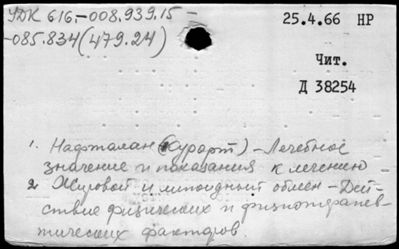 УДК 616-008.939.15-
-085.834(479.24)
25.4.66 НР
Чит.
Д 38254
1. Нафталан (Курорт) - Лечебное
значение и показания к лечению
2. Жировой и липоидный обмен - Дей-
ствие физических и физиотерапев-
тических факторов.